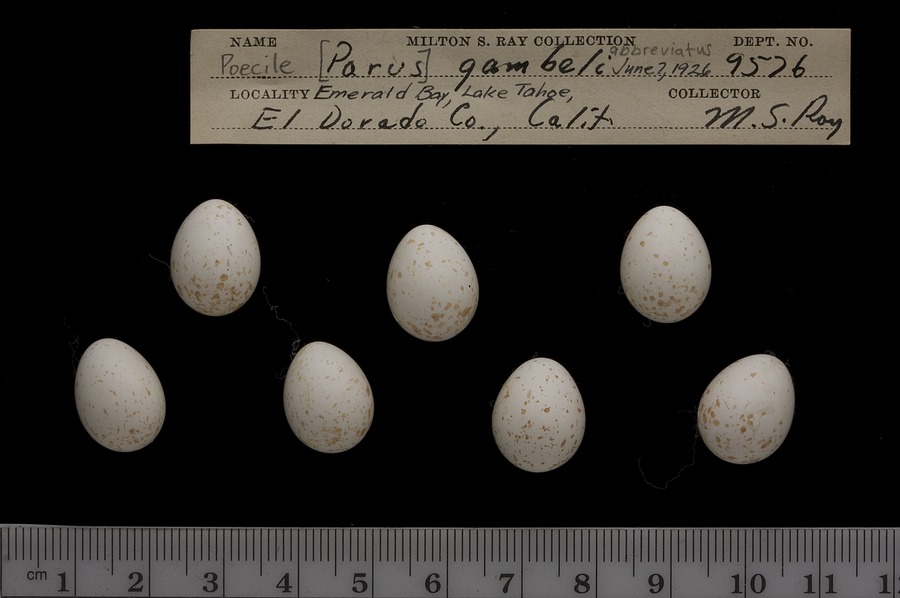 NAME MILTON S. RAY COLLECTION DEPT. NO.
abbreviatus
Poecile [Parus] gambeli June 7, 1926 9576
LOCALITY Emerald Bay, Lake Tahoe, COLLECTOR
El Dorado Co., Calif. M. S. Ray
cm 1 2 3 4 5 6 7 8 9 10 11 1